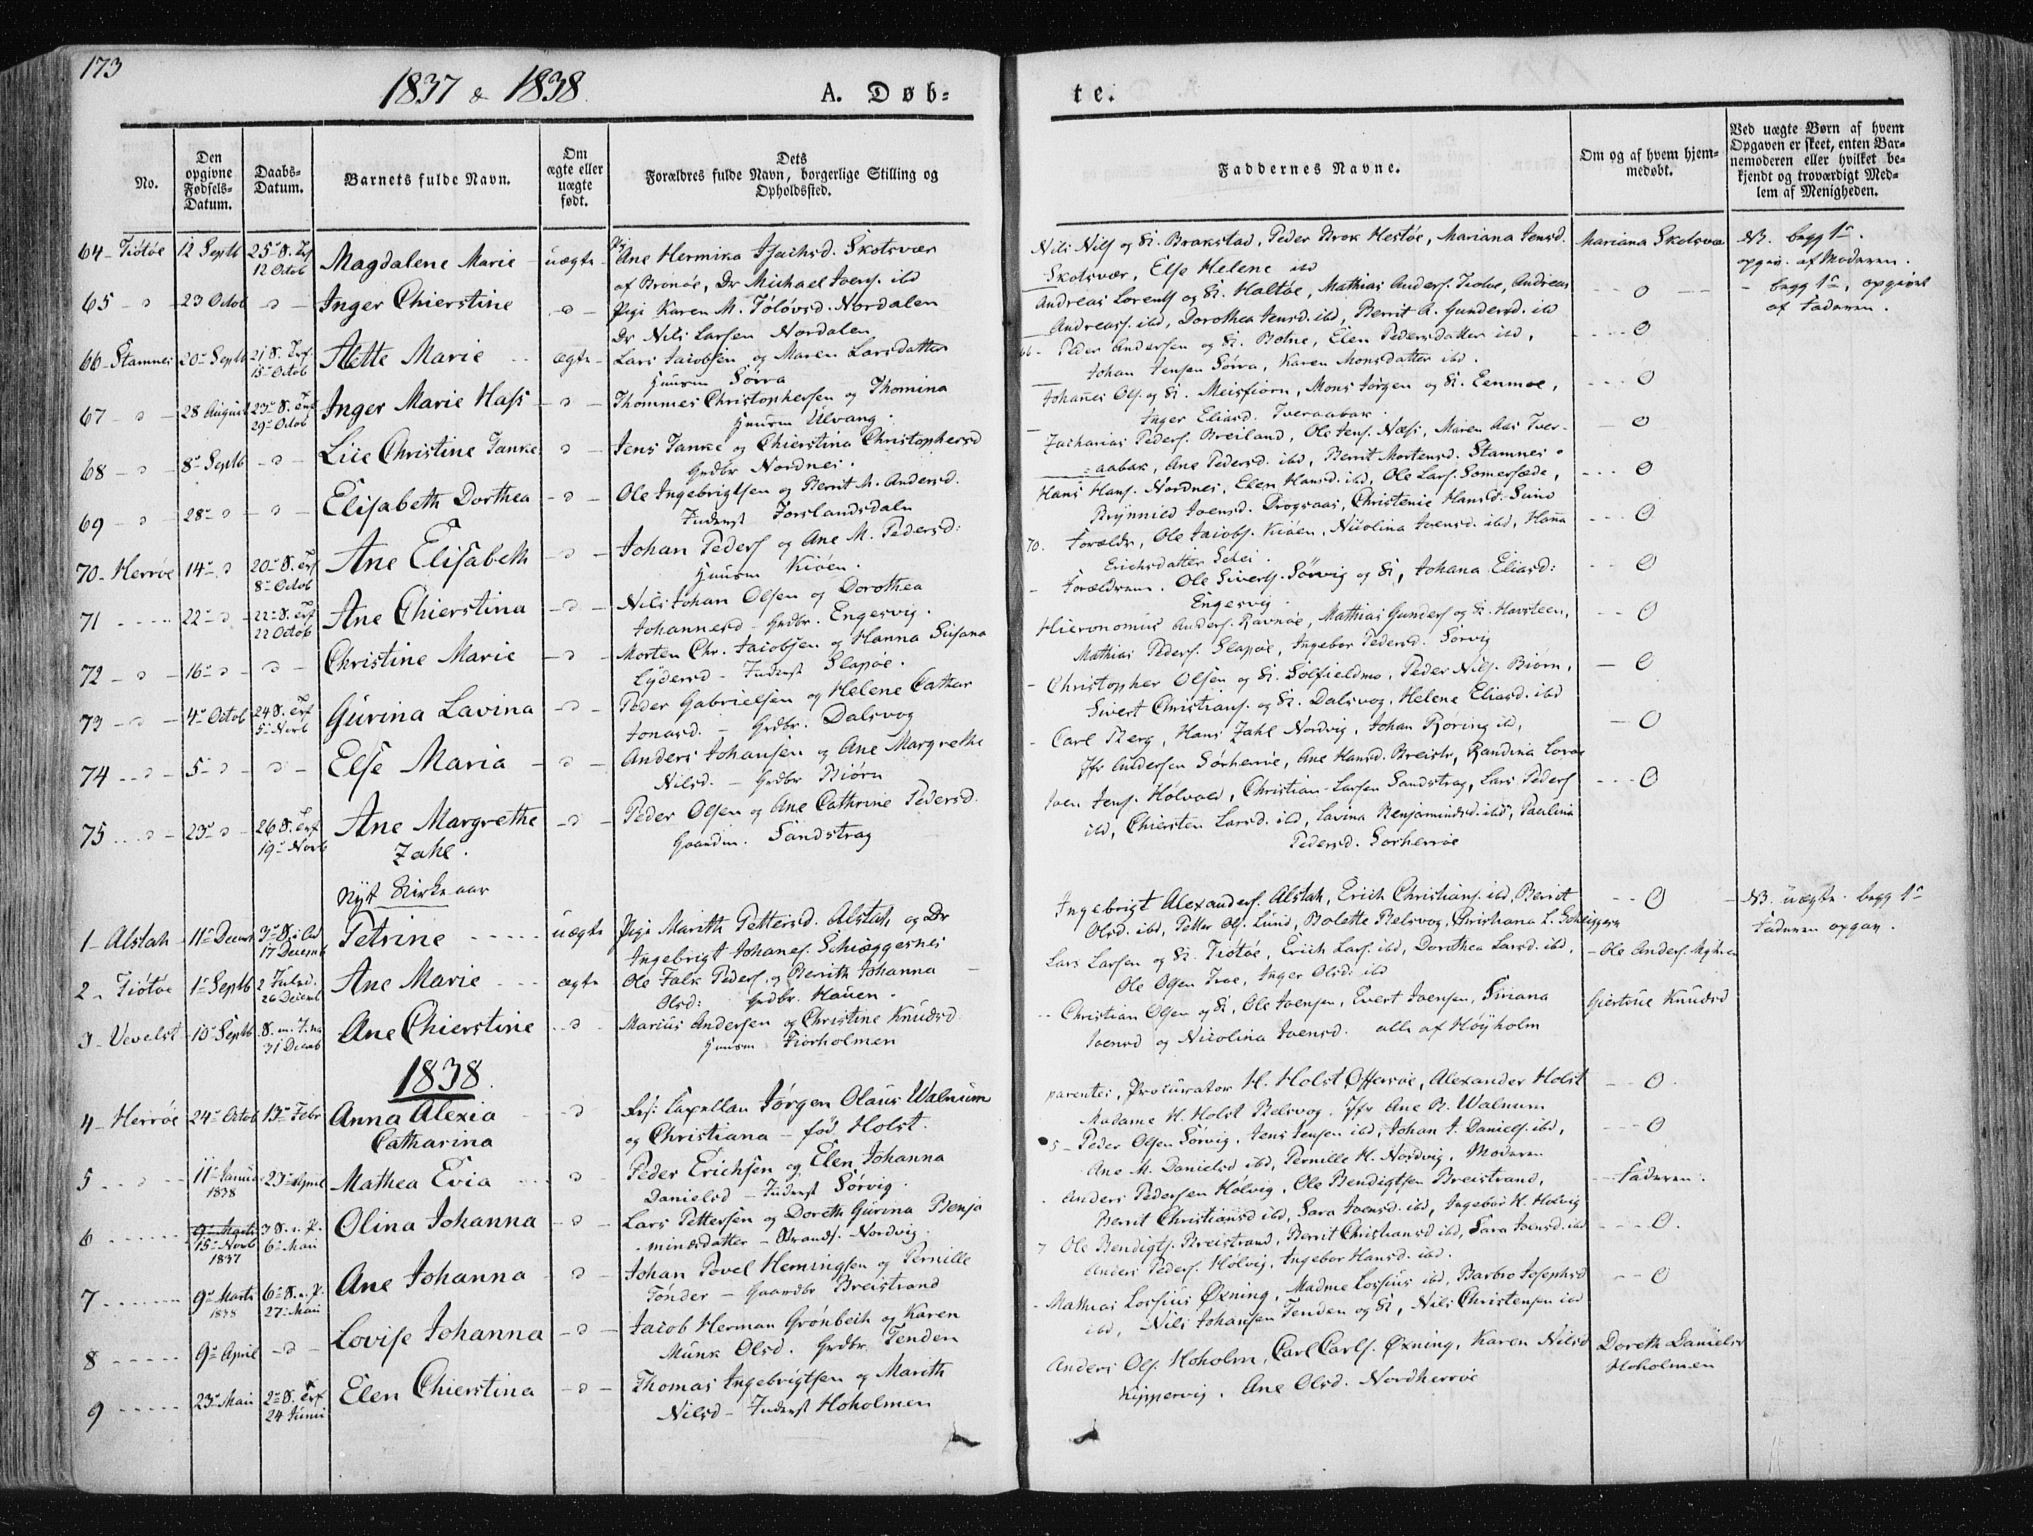 173
1837 & 1838.
A. Døb-
te.
No.
Den opgivne Fødsels-Datum.
Daabs-Datum.
Barnets fulde Navn.
Om ægte eller uægte født.
Dets Forældres fulde Navn, borgerlige Stilling og Opholdssted.
Faddernes Navne.
Om og af hvem hjemmedøbt.
Ved uægte Børn af hvem Opgaven er skeet, enten Barnemoderen eller hvilket bekjendt og troværdigt Medlem af Menigheden.
64 - Tiötöe 12 Septb 25 S. Trf 12 Octob Magdalene Marie uægte
Ane Hermika Skotsvær
af Bronöe, Dr Michael Joens. ibd
Nils Nils og K. Brakstad, Peder Brok Hestöe, Mariana Jensd.
Skotsvær, Else Helene ibd
Mariana Skotsvær
NB. begg 1ste
opgiv. af Moderen.
65 - " 23 Octob - " - Inger Chierstine - " -
Pige Karen M. Nordalen
Dr Nils Larsen Nordalen
Andreas Lorents og K. Haltöe, Mathias Anders. Tiotöe, Andreas
Andreass. ibd, Dorothea Jensd. ibd, Berrit A. Gundersd. ibd
O
begg 1ste, opgivet
af Faderen.
66 - Stamnes 20 Septb 21 S. Trf 15 Octob Mette Marie ægte
Lars Jacobsen og Maren Larsdatter
Huusm Sörra
Peder Andersen og K. Botne, Elen Pedersdatter ibd,
Johan Jensen Sörra, Karen Monsdatter ibd.
O
67 - " 28 August 23 S. Trf 29 Octob Inger Marie Hass - " -
Thommes Christophersen og Thomina
Huusm Ulvang.
Johañes Ols. og K. Meisfiorn, Mons Jörgen og K. Eenmoe,
Inger Eliasd. Tveraabak.
O
68 - " 8 Septb - " - Lice Christine Tanke - " -
Jens Tanke og Chierstina Christophersd
Grdbr Nordnes.
Zacharias Peders. Breiland, Ole Jens. Næss, Maren Aas Tver-
aabak, Ane Pedersd. ibd, Berrit Mortensd. Stamnes
O
69 - " 28 " - " - Elisabeth Dorthea - " -
Ole Ingebrigtsen og Berrit M. Andersd.
Inderst Forslandsdaln
Hans Hans. Nordnes, Elen Hansd. ibd, Ole Lars. Somersæde,
Brÿnnild Joensd. Drogsaas, Christenie Hansd. Sund
O
70 - Herröe 14 " 20 S. Trf 8 Octob Ane Elisabeth - " -
Johan Peders og Ane M. Pedersd:
Huusm Kiöen.
70. Forældr., Ole Jacobs. Kiöen, Nicolina Joensd. ibd, Hanna
Erichsdatter Schei.
O
71 22 " 22 S. Trf 22 Octob Ane Chierstina - " -
Nils Johan Olsen og Dorothea
Johannesd - Grdbr. Engesvig.
Forældrene. Ole Siverts. Sörvig og K, Johana Eliasd:
Engesvig.
O
72 - " 16 " - " - Christine Marie - " -
Morten Chr. Jacobsen og Hanna Susana
Lÿdersd - Inderst Slapöe.
Hieronomus Anders. Ravnöe, Mathias Gunders og K. Havsteen,
Mathias Peders. Slapöe, Ingebor Pedersd. Sörvig
O
73 - " 4 Octob 24 S. Trf 5 Novb Gurina Lavina - " -
Peder Gabrielsen og Helene Cathar
Jonasd. - Grdbr. Dalsvog
Christopher Olsen og K. Sölfieldmo, Peder Nils. Biörn,
Sivert Christians. og K. Dalsvog, Helene Eliasd. ibd
O
74 - " 5 " - " - Else Maria - " -
Anders Johansen og Ane Margrethe
Nilsd. - Grdbr Biörn
Carl Berg, Hans Zahl Nordvig, Johan Roring ibd,
Jfr Andersen Sörherröe, Ane Hansd. Breistr, Randina
O
75 - " 23 " 26 S. Trf 19 Novb Ane Margrethe Zahl. - " -
Peder Olsen og Ane Cathrine Pedersd.
Gaardm. Sandstrag
Joen Jens. Holvold, Christian Larsen Sandstrag, Lars Peders
ibd, Chiersten Larsd. ibd, Lavina Benjamindsd. ibd, Paulina
Pedersd. Sörherröe
O
Nyt Kirkeaar
1 - Alstah. 11 Decmr 3 S. i Ad 17 Decemb Petrine uægte
Pige Marith Pettersd. Alstah. og Dr
Ingebrigt Johanes. Schiæggesnes
Ingebrigt Alexanders. Alstah, Erich Christians. ibd, Berrit
Olsd. ibd, Petter Ols. Lund, Bolette Belsvog, Christiana L.
O
NB. uægte. begg 1ste
Faderen opgav.
2 - Tiötöe 1 Septb 2 Juled. 26 Decemb Ane Marie ægte
Ole Falk Peders. og Berrith Johanna
Olsd: Grdbr. Hauen.
Lars Larsen og K. Tiötöe, Erich Lars. ibd, Dorothea Larsd. ibd,
Ole Olsen Troe, Inger Olsd: ibd
Ole Anders.
3 - Vevelst 10 Septb S. m. J. Na 31 Decmb Ane Chierstine - " -
Marius Andersen og Christine Knudsd
Huusm Fiorholmen
Christian Olsen og K, Ole Joensen, Evert Joensen, Siriana
Joensd og Nicolina Joensd. alle af Höÿholm
Giertrue Knudsd
1838.
4 - Herröe 24 Octob 13 Febr Anna Alexia Catharina - " -
Capellan Jörgen Olaus Walnum
og Christiana - fød Holst.
parentes, Procurator H. Holst Offersöe, Alexander Holst
Madame H. Holst Belsvog. Jfr Ane B. Walnum
O.
5 - " 11 Janua 1838 23 April Mathea Evia - " -
Peder Erichsen og Elen Johanna
Danielsd - Inderst Sörvig.
5 - Peder Olsen Sörvig, Jens Jensen ibd, Johan J. Daniels. ibd,
Ane M. Danielsd ibd, Pernille H. Nordvig, Moderen
O
6 15 Novb 1837 3 S. e. P. 6 Mai Olina Johanna - " -
Lars Pettersen og Doreth Gurina Benja
mindsdatter - Strands. Nordvig.
Anders Pedersen Hölvig, Ole Bendigtsen Breistrand,
Berrit Christiansd ibd, Sara Joensd. ibd, Ingebor H. Holvig
Faderen.
7 9 Marts 1838 6 S. e. P. 27 Mai Ane Johanna - " -
Johan Povel Hemingsen og Pernille
Tönder - Gaardbr Breistrand
7 Ole Bendigts. Breistrand, Berrit Christiansd ibd, Sara Joensd. ibd
Anders Peders. Hölvig, Ingebor Hansd. ibd.
O.
8 9 April - " - Lovise Johanna - " -
Jacob Herman Grönbech og Karen
Munk Olsd. Grdbr. Tenden
Mathias Lossius Øxning, Madme Lossius ibd, Barbro Josephsd
ibd, Nils Johansen Tenden og K, Nils Christensen ibd
O
9 23 Mai 2 S. Trf 24 Junii Elen Chierstina - " -
Thomas Ingebrigtsen og Mareth
Nilsd - Inderst Hoholmen
Anders Ols. Hoholm, Carl Carls. Øxning, Karen Nilsd
Kippervig, Ane Olsd. Nordherröe
Doreth Danielsd
Hoholmen